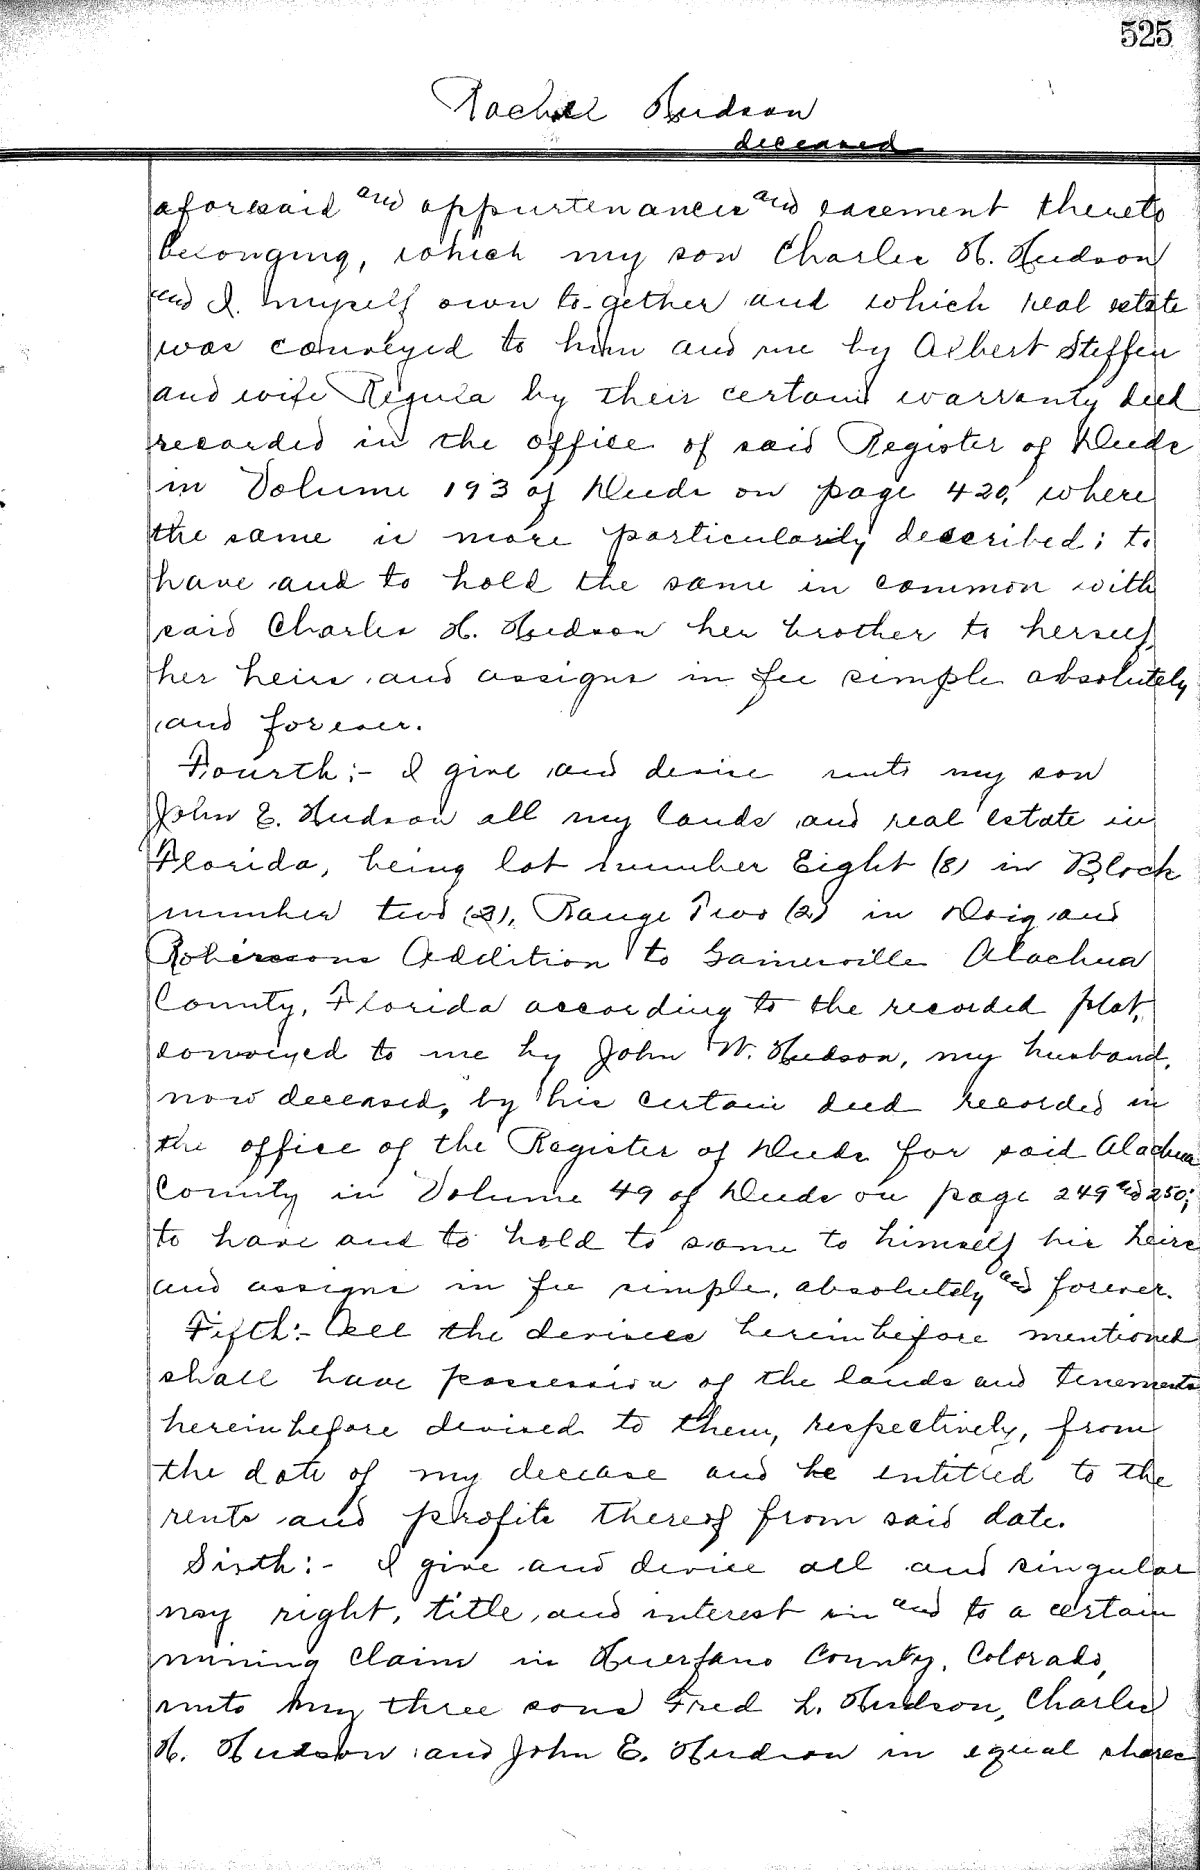 525
Rachel Hudson
deceased
aforesaid and appurtenances and easement thereto
belonging, which my son Charles H. Hudson
and I myself own to-gether and which real estate
was conveyed to him and me by Albert Steffen
and wife Regula by their certain warranty deed
recorded in the office of said Register of Deeds
in Volume 193 of Deeds on page 420, where
the same is more particularily described; to
have and to hold the same in common with
said Charles H. Hudson her brother to herself
her heirs and assigns in fee simple absolutely
and forever.
Fourth:- I give and devise unto my son
John E. Hudson all my lands and real estate in
Florida, being lot number Eight (8) in Block
number two (2), Range Two (2) in Doig and
Robinsons Addition to Gainesville Alachua
County, Florida according to the recorded plat,
conveyed to me by John W. Hudson, my husband,
now deceased, by his certain deed recorded in
the office of the Register of Deeds for said Alachua
County in Volume 49 of Deeds on page 249 and 250;
to have and to hold to same to himself his heirs
and assigns in fee simple, absolutely and forever.
Fifth:- All the devisees hereinbefore mentioned
shall have possession of the lands and tenements
hereinbefore devised to them, respectively, from
the date of my decease and be entitled to the
rents and profits thereof from said date.
Sixth:- I give and devise all and singular
my right, title, and interest in and to a certain
mining claim in Huerfano County, Colorado,
unto my three sons Fred L. Hudson, Charles
H. Hudson and John E. Hudson in equal shares